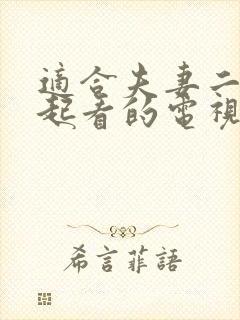 適合夫妻二
起看的電視
希言菲語